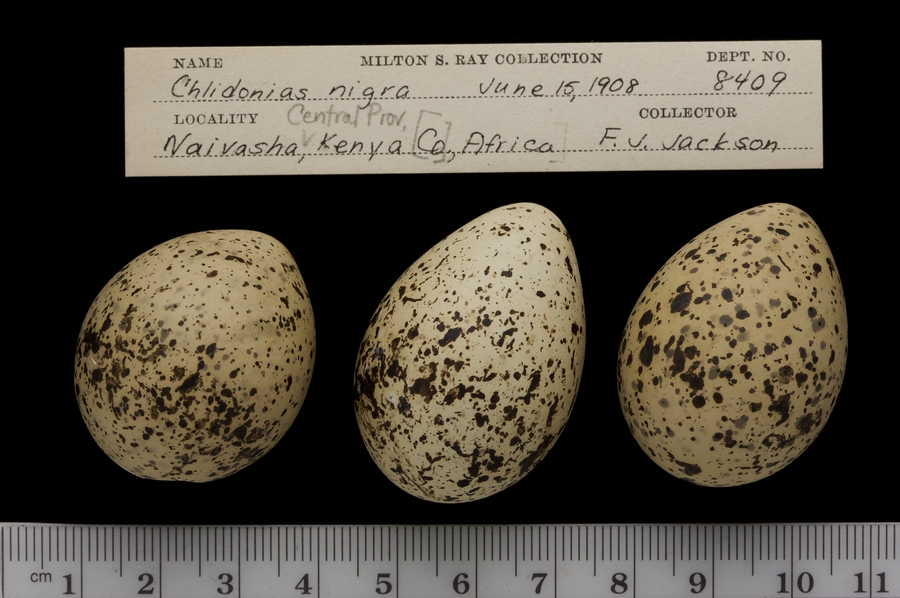 NAME MILTON S. RAY COLLECTION DEPT. NO.
Chlidonias nigra June 15, 1908 8409
LOCALITY Central Prov. COLLECTOR
Naivasha, Kenya [Co], Africa] F. J. Jackson
cm 1 2 3 4 5 6 7 8 9 10 11